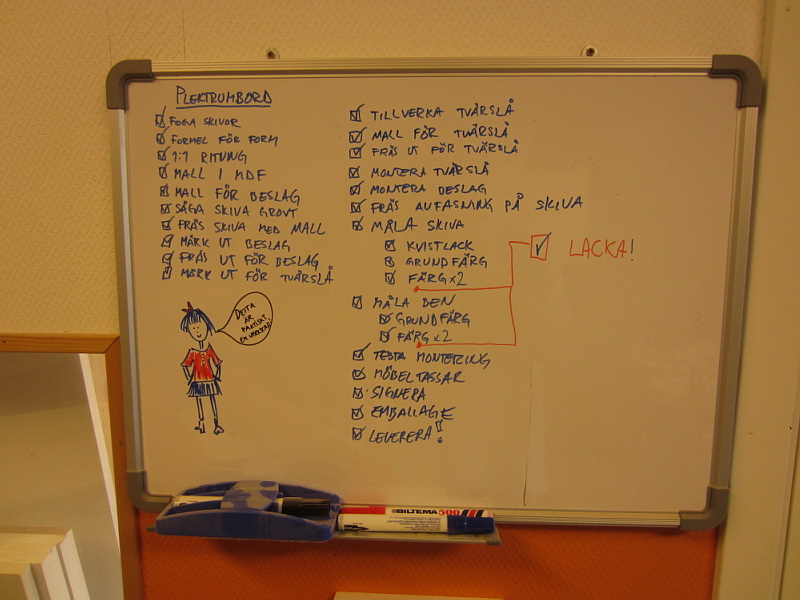 PLEKTRUMBORD
FOGA SKIVOR
FORMEL FÖR FORM
1:1 RITNING
MALL I MDF
MALL FÖR BESLAG
SÅGA SKIVA GROVT
FRÄS SKIVA MED MALL
MÄRK UT BESLAG
FRÄS UT FÖR BESLAG
MÄRK UT FÖR TVÄRSLÅ
DETTA
ÄR
FAKTISKT
EN VERKSTAD!
TILLVERKA TVÄRSLÅ
MALL FÖR TVÄRSLÅ
FRÄS UT FÖR TVÄRSLÅ
MONTERA TVÄRSLÅ
MONTERA BESLAG
FRÄS AVFASNING PÅ SKIVA
MÅLA SKIVA
KVISTLACK
GRUNDFÄRG
FÄRG x2
MÅLA BEN
GRUNDFÄRG
FÄRG x2
TESTA MONTERING
MÖBELTASSAR
SIGNERA
EMBALLAGE
LEVERERA!!
LACKA!
BILTEMA 500